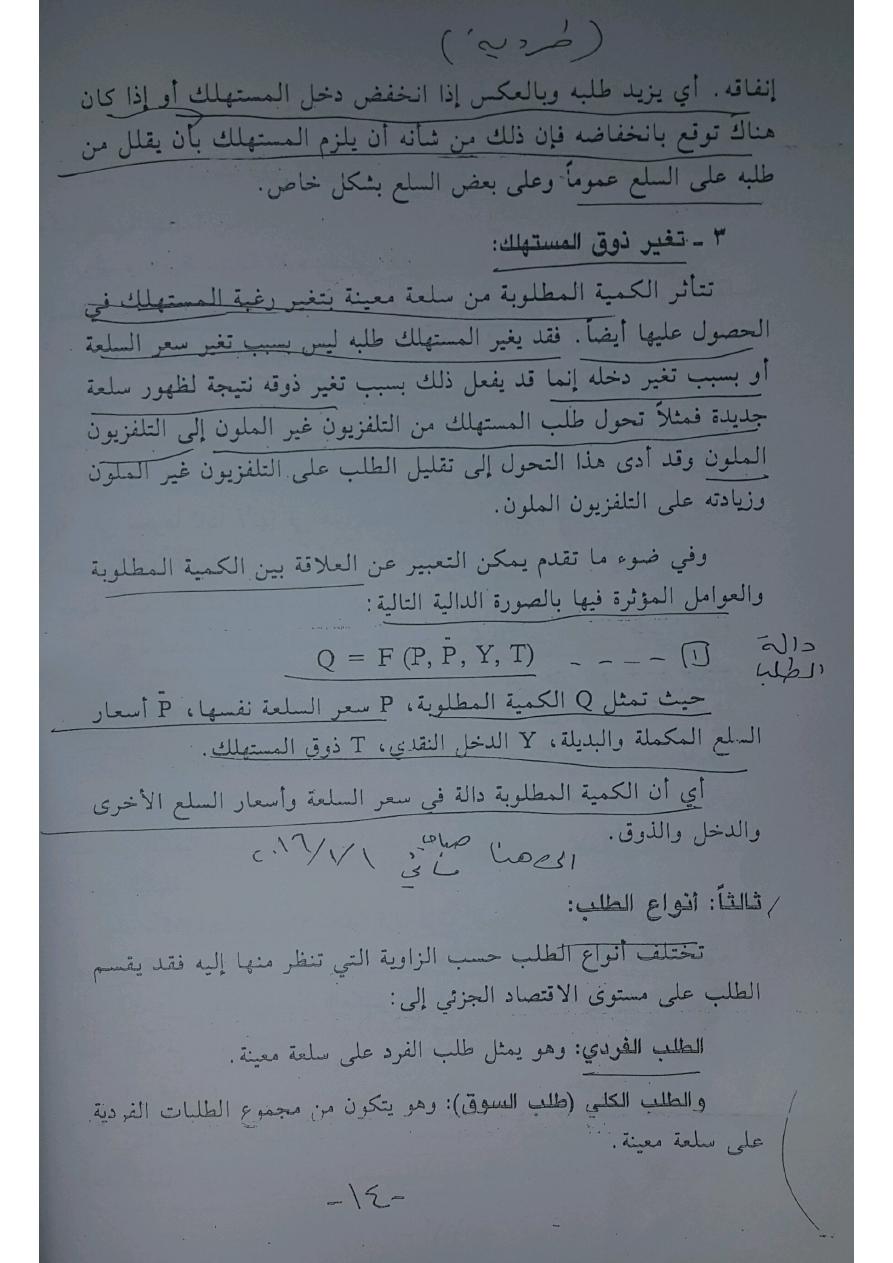 (طردية)
إنفاقه. أي يزيد طلبه وبالعكس إذا انخفض دخل المستهلك أو إذا كان
هناك توقع بانخفاضه فإن ذلك من شأنه أن يلزم المستهلك بأن يقلل من
طلبه على السلع عموماً وعلى بعض السلع بشكل خاص.
٣ - تغير ذوق المستهلك:
تتأثر الكمية المطلوبة من سلعة معينة بتغير رغبة المستهلك في
الحصول عليها أيضاً. فقد يغير المستهلك طلبه ليس بسبب تغير سعر السلعة
أو بسبب تغير دخله إنما قد يفعل ذلك بسبب تغير ذوقه نتيجة لظهور سلعة
جديدة فمثلاً تحول طلب المستهلك من التلفزيون غير الملون إلى التلفزيون
الملون وقد أدى هذا التحول إلى تقليل الطلب على التلفزيون غير الملون
وزيادته على التلفزيون الملون.
وفي ضوء ما تقدم يمكن التعبير عن العلاقة بين الكمية المطلوبة
والعوامل المؤثرة فيها بالصورة الدالية التالية:
Q = F (P, P̈, Y, T) - - - - ١ دالة
الطلب
حيث تمثل Q الكمية المطلوبة، P سعر السلعة نفسها، P̈ أسعار
السلع المكملة والبديلة، Y الدخل النقدي، T ذوق المستهلك.
أي أن الكمية المطلوبة دالة في سعر السلعة وأسعار السلع الأخرى
والدخل والذوق.
الى هنا صباحي ٢٠١٦/١/١
مسائي
ثالثاً: أنواع الطلب:
تختلف أنواع الطلب حسب الزاوية التي تنظر منها إليه فقد يقسم
الطلب على مستوى الاقتصاد الجزئي إلى:
الطلب الفردي: وهو يمثل طلب الفرد على سلعة معينة.
والطلب الكلي (طلب السوق): وهو يتكون من مجموع الطلبات الفردية
على سلعة معينة.
-١٤-